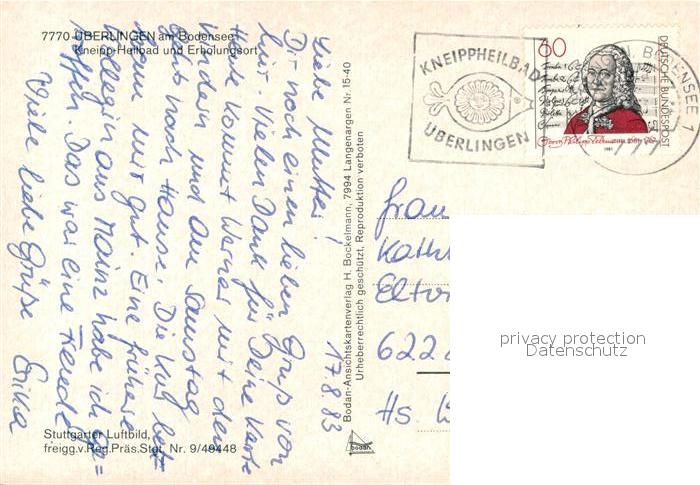 7770 ÜBERLINGEN am Bodensee
Kneipp-Heilbad und Erholungsort
17.8.83
Liebe Mutter!
Dir noch einen lieben Gruß von
hier. Vielen Dank für Deine Karte
Heute kommt Werner mit den
Kindern und am Samstag
geht's nach Hause. Die Kur bekam
mir gut. Eine frühere
Kollegin aus Mainz habe ich ge=
troffen. Das war eine Freude
Viele liebe Grüße
Erika
Stuttgarter Luftbild,
freigg.v.Reg.Präs.Stgt. Nr. 9/48448
Bodan-Ansichtskartenverlag H. Bockelmann, 7994 Langenargen Nr. 15-40
Urheberrechtlich geschützt, Reproduktion verboten
bodan
KNEIPPHEILBAD
ÜBERLINGEN
BODENSEE
60
DEUTSCHE BUNDESPOST
Georg Philipp Telemann
1981
Frau
Eltv
622
Hs.
privacy protection
Datenschutz